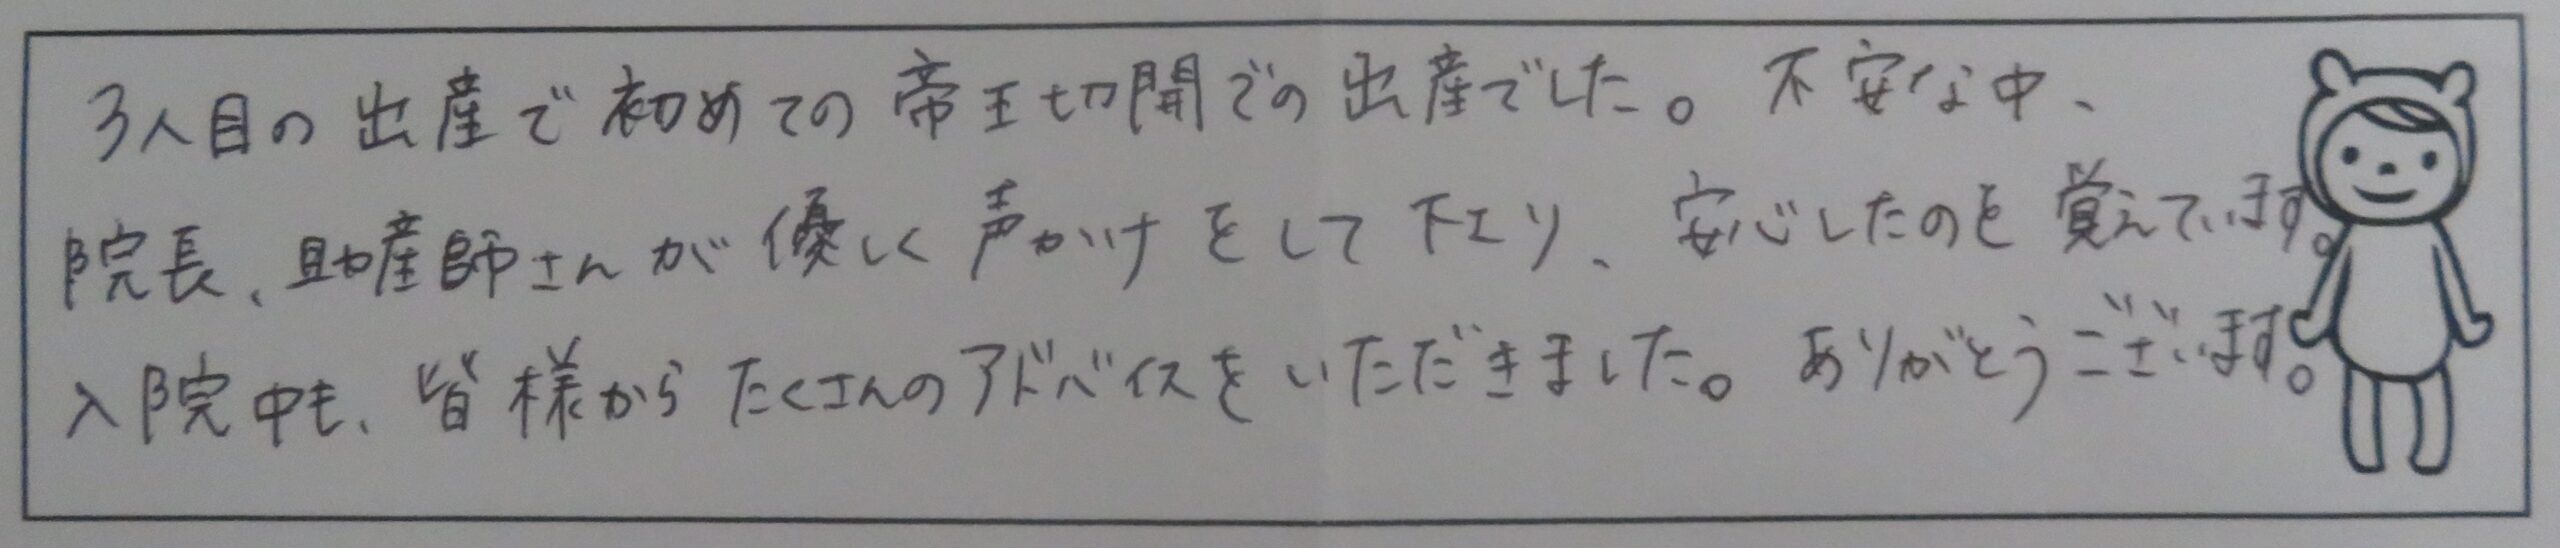 3人目の出産で初めての帝王切開での出産でした。不安な中、
院長、助産師さんが優しく声かけをして下さり、安心したのを覚えています。
入院中も、皆様からたくさんのアドバイスをいただきました。ありがとうございます。